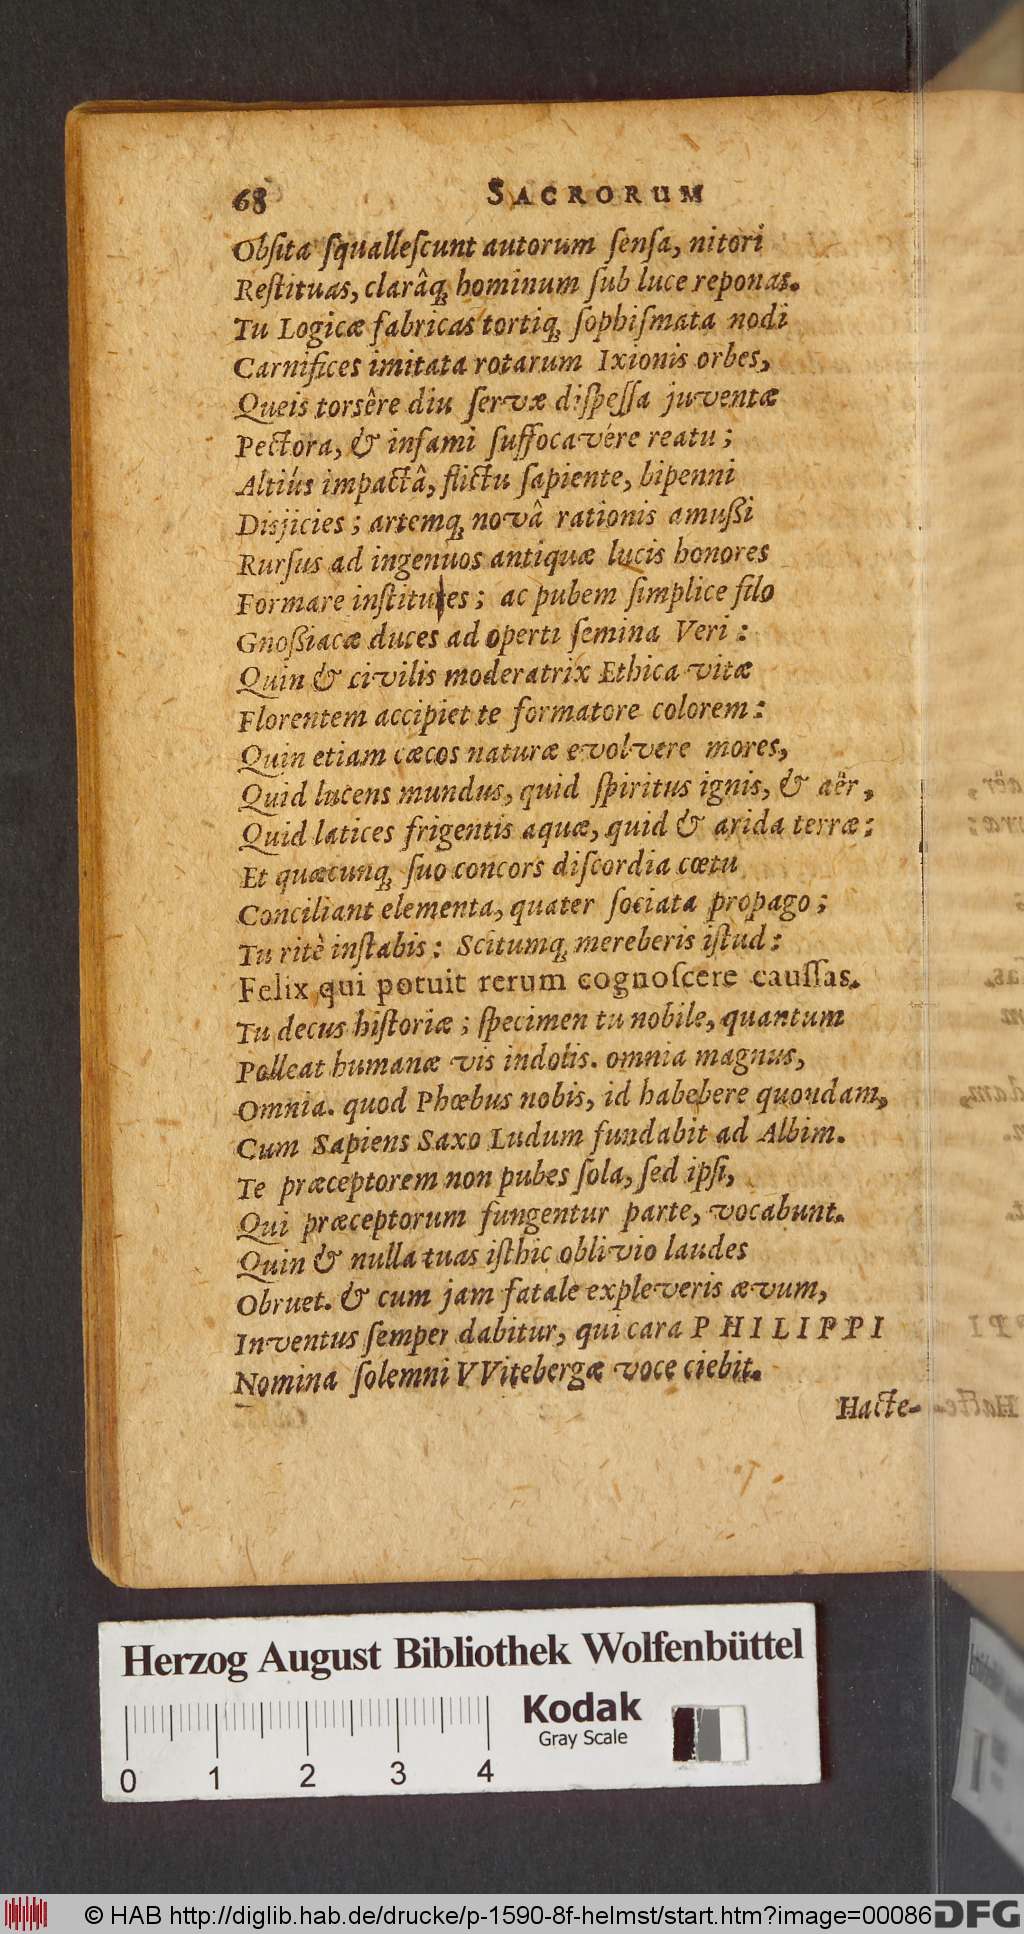 68 SACRORUM
Obſita ſqualleſcunt autorum ſenſa, nitori
Reſtituas, clarâq; hominum ſub luce reponas.
Tu Logicæ fabricas tortiq; ſophiſmata nodi
Carnifices imitata rotarum Ixionis orbes,
Queis torsêre diu ſervæ diſpeſſa juventæ
Pectora, & infami ſuffocavére reatu;
Altiús impactâ, flictu ſapiente, bipenni
Disjicies; artemq; novâ rationis amußi
Rurſus ad ingenuos antiquæ lucis honores
Formare inſtitues; ac pubem ſimplice filo
Gnoßiacæ duces ad operti ſemina Veri:
Quin & civilis moderatrix Ethica vitæ
Florentem accipiet te formatore colorem:
Quin etiam cæcos naturæ evolvere mores,
Quid lucens mundus, quid ſpiritus ignis, & aër,
Quid latices frigentis aquæ, quid & arida terræ:
Et quæcunq; ſuo concors diſcordia cœtu
Conciliant elementa, quater ſociata propago;
Tu ritè inſtabis: Scitumq; mereberis iſtud:
Felix qui potuit rerum cognoſcere cauſſas.
Tu decus hiſtoriæ; ſpecimen tu nobile, quantum
Polleat humanæ vis indolis. omnia magnus,
Omnia. quod Phœbus nobis, id habebere quondam,
Cum Sapiens Saxo Ludum fundabit ad Albim.
Te præceptorem non pubes ſola, ſed ipſi,
Qui præceptorum fungentur parte, vocabunt.
Quin & nulla tuas iſthic oblivio laudes
Obruet. & cum jam fatale expleveris ævum,
Inventus ſemper dabitur, qui cara PHILIPPI
Nomina ſolemni VVitebergæ voce ciebit.
Hacte-
Herzog August Bibliothek Wolfenbüttel
Kodak
Gray Scale
0 1 2 3 4
© HAB http://diglib.hab.de/drucke/p-1590-8f-helmst/start.htm?image=00086
DFG